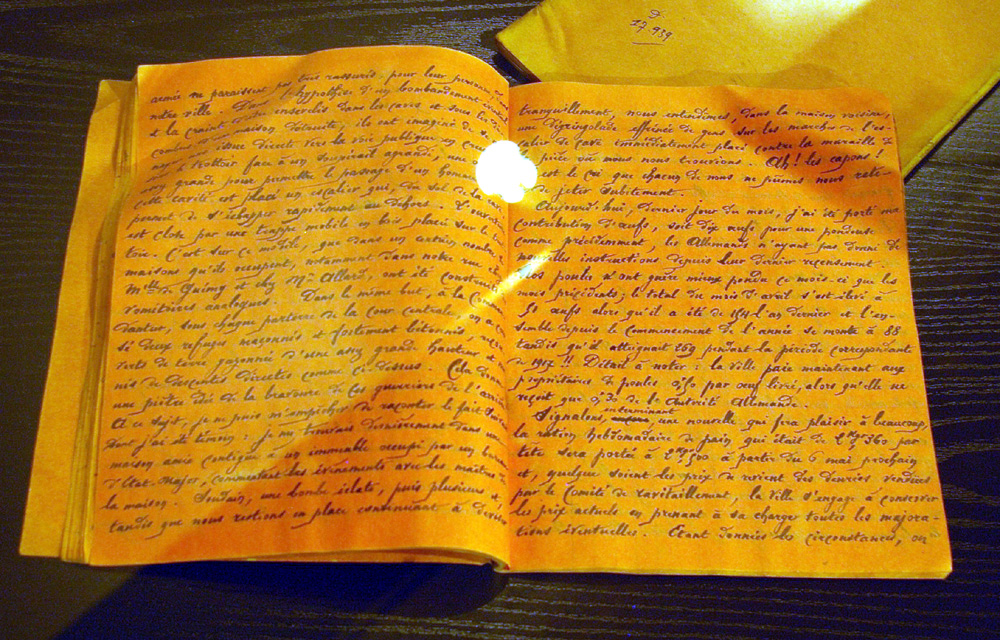 D
17.939
armée ne paraissent pas très rassurés pour leur
notre ville. Dans l'hypothèse d'un bombardement
et la crainte d'être ensevelis dans les caves et sous les
maison détruite, ils ont imaginé de
issue directe vers la voie publique en
trottoir face à un soupirail agrandi, une
grande pour permettre le passage d'un homme
cette cavité est placé un escalier qui, du sol de la
permet de s'échapper rapidement au dehors. L'ouverture
est close par une trappe mobile en bois placée sur le trot-
toir. C'est sur ce modèle, que dans un certain nombre
maisons qu'ils occupent, notamment dans notre rue, chez
Melle de Quimy et chez Mr Allard, ont été construits
vomitoires analogues. Dans le même but, à la
dantur, sous chaque parterre de la cour centrale on a
sé deux refuges maçonnés et fortement bétonnés,
verts de terre gazonnée d'une assez grande hauteur et
nis de descentes directes comme ci-dessus. Cela donne
une piètre idée de la bravoure de ces guerriers de l'arrière
A ce sujet, je ne puis m'empêcher de raconter le fait suivant
dont j'ai été témoin : je me trouvais dernièrement dans une
maison amie contiguë à un immeuble occupé par un bureau
d'Etat-Major, commentant les évènements avec les maîtres de
la maison. Soudain, une bombe éclate, puis plusieurs et,
tandis que nous restions en place continuant à deviser
tranquillement, nous entendîmes, dans la maison voisine,
une dégringolade effrénée de gens sur les marches de l'es-
calier de cave immédiatement placé contre la muraille de
pièce où nous nous trouvions. Ah ! les capons
est le cri que chacun de nous ne pûmes nous rete-
de jeter subitement.
Aujourd'hui, dernier jour du mois, j'ai été porté ma
contribution d'œufs, soit dix œufs pour une pondeuse
comme précédemment, les Allemands n'ayant pas donné de
nouvelles instructions depuis leur dernier recensement.
Nos poules n'ont guère mieux pondu ce mois-ci que les
mois précédents ; le total du mois d'avril s'est élevé à
50 œufs alors qu'il a été de 154 l'an dernier et l'en-
semble depuis le commencement de l'année se monte à 88
tandis qu'il atteignait 269 pendant la période correspondante
de 1917 !! Détail à noter : la ville paie maintenant aux
propriétaires de poules 0,50 par œuf livré, alors qu'elle ne
reçoit que 0,30 de l'Autorité Allemande.
Signalons, en terminant, une nouvelle que fera plaisir à beaucoup,
la ration hebdomadaire de pain qui était de 2kgs360 par
tête sera portée à 2kgs500 à partir du 6 mai prochain
et, quelque soient les prix de revient des denrées vendues
par le Comité de ravitaillement, la ville s'engage à conserver
les prix actuels en prenant à sa charge toutes les majora-
tions éventuelles. Etant données les circonstances, on